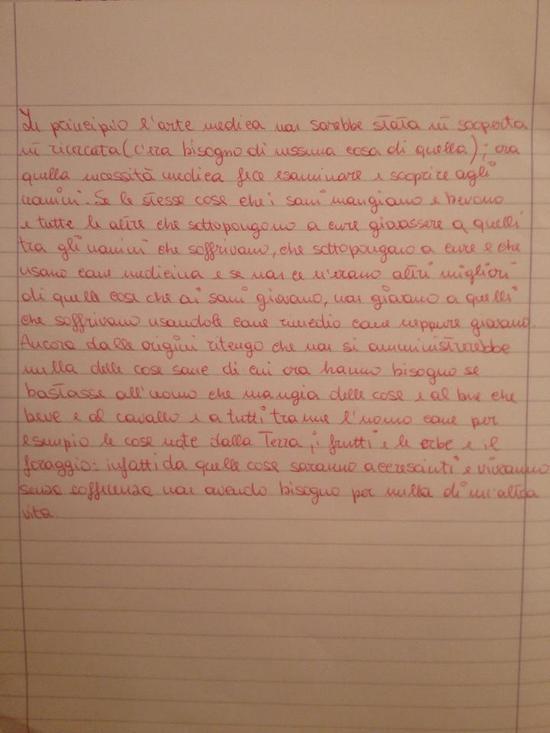 In principio l'arte medica non sarebbe stata nè scoperta
nè ricercata (c'era bisogno di nessuna cosa di quella); ora
quella necessità medica fece esaminare e scoprire agli
uomini. Se le stesse cose che i sani mangiano e bevono
e tutte le altre che sottopongono a cure giovassero a quelli
tra gli uomini che soffrivano, che sottopongono a cure e che
usano come medicina e se non ce n'erano altri migliori
di quelle cose che ai sani giovano, non giovano a quelli
che soffrivano usandole come rimedio come neppure giovano.
Ancora dalle origini ritengo che non si amministrerebbe
nulla delle cose sane di cui ora hanno bisogno se
bastasse all'uomo che mangia delle cose e al bue che
beve e al cavallo e a tutti tranne l'uomo come per
esempio le cose nate dalla Terra, i frutti e le erbe e il
foraggio: infatti da quelle cose saranno accresciuti e vivranno
senza sofferenza non avendo bisogno per nulla di un'altra
vita.